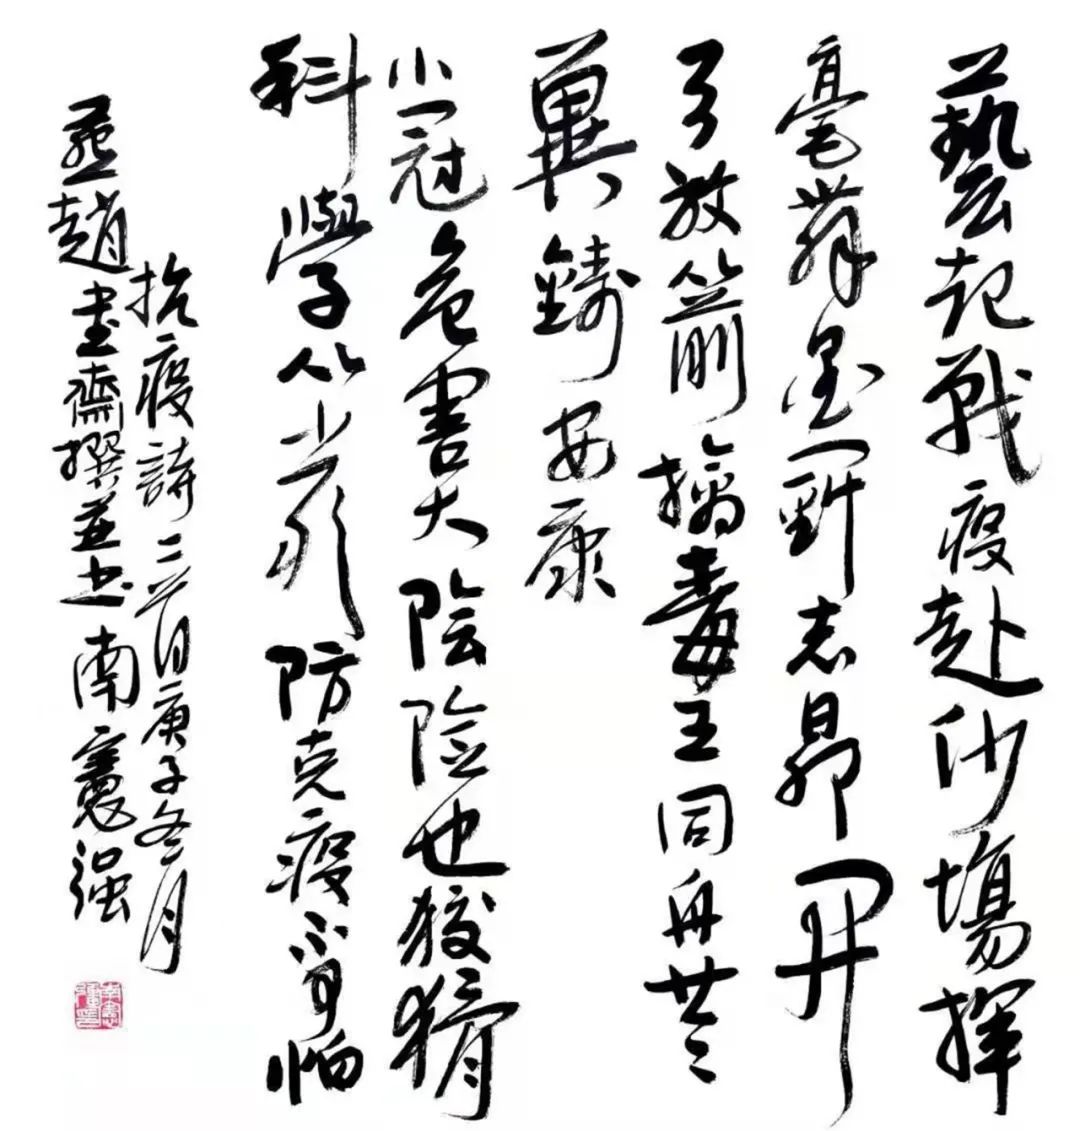 藝起戰疫赴沙場揮
毫舞墨鬥志昂開
弓放箭擒毒王同舟共
冀鑄安康
小冠危害大陰險也狡猾
科學防克疫不可怕
抗疫詩二首庚子冬月
燕趙書齋撰並書南憲强